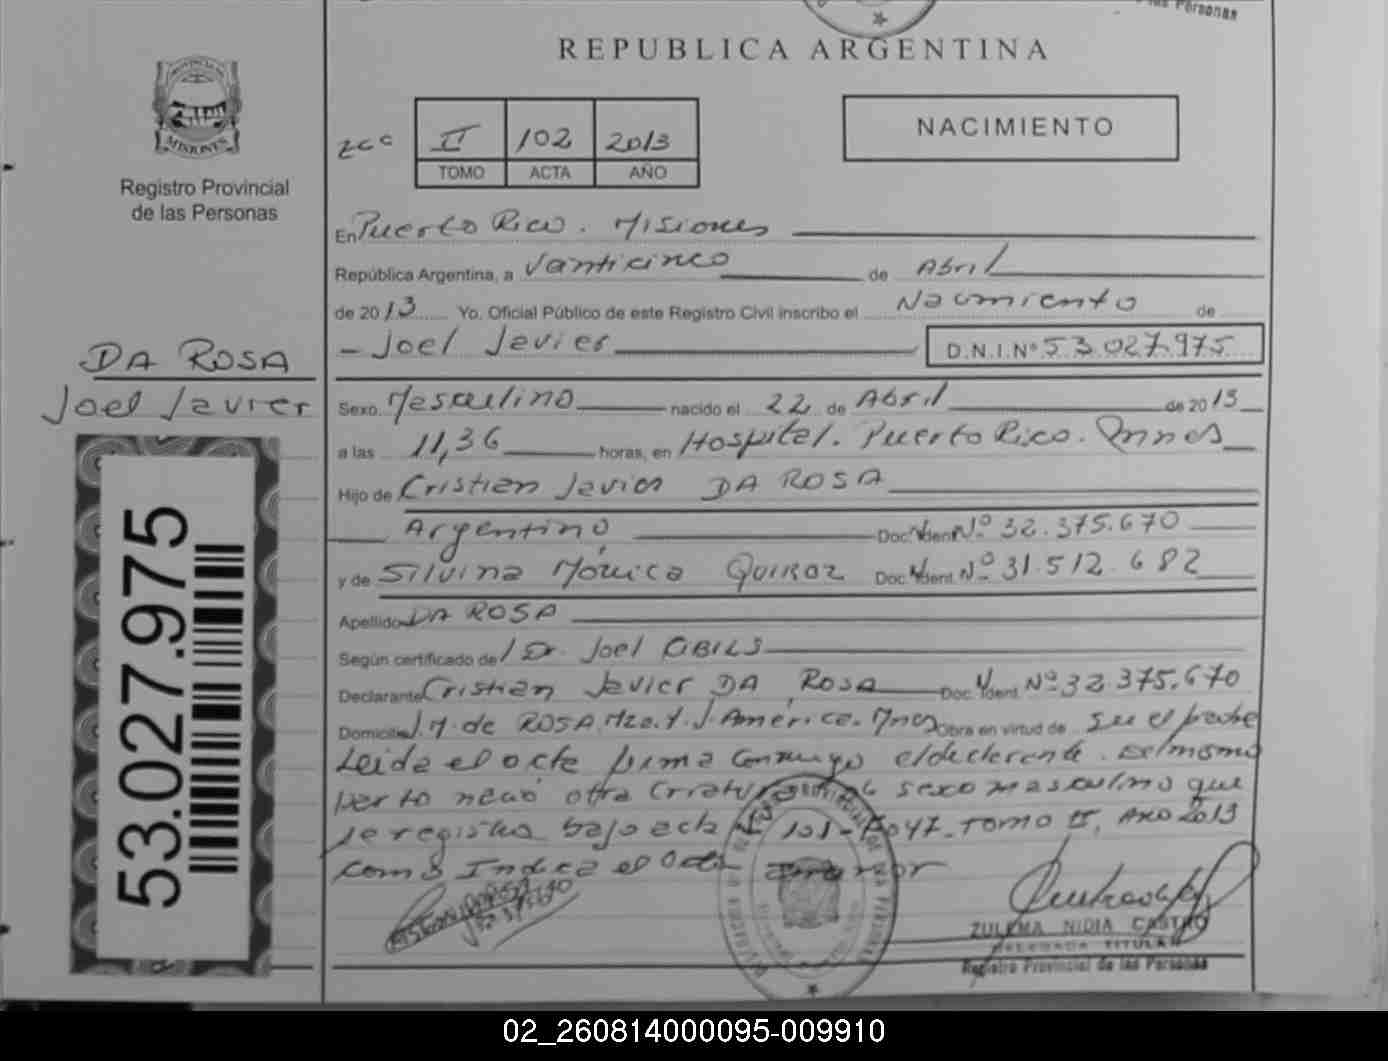 las Personas
REPUBLICA ARGENTINA
PROVINCIA DE
MISIONES
Registro Provincial
de las Personas
II 102 2013
TOMO ACTA AÑO
NACIMIENTO
En Puerto Rico. Misiones
República Argentina, a Vanticinco de Abril
de 2013 Yo. Oficial Público de este Registro Civil inscribo el Nacimiento de
- Joel Javier D.N.I.Nº 53.027.975
DA ROSA
Joel Javier
Sexo Masculino nacido el 22 de Abril de 2013
a las 11,36 horas, en Hospital. Puerto Rico. Mnes
Hijo de Cristian Javier DA ROSA
Argentino Doc. Ident. Nº 32.375.670
y de Silvina Mónica QUIROZ Doc. Ident. Nº 31.512.682
Apellido DA ROSA
Según certificado de Dr. Joel CIBILS
Declarante Cristian Javier DA ROSA Doc. Ident. Nº 32.375.670
Domicilio J.M. de ROSA, Mza. J. América. Mnes Obra en virtud de Su el padre
Leida el acta firma conmigo el declarante. Del mismo
parto nació otra criatura de sexo masculino que
se registra bajo acta Nº 101 - Tomo II, Año 2013
como Indica el Acta
53.027.975
ZULEMA NIDIA CASTRO
DELEGADA TITULAR
Registro Provincial de las Personas
02_260814000095-009910